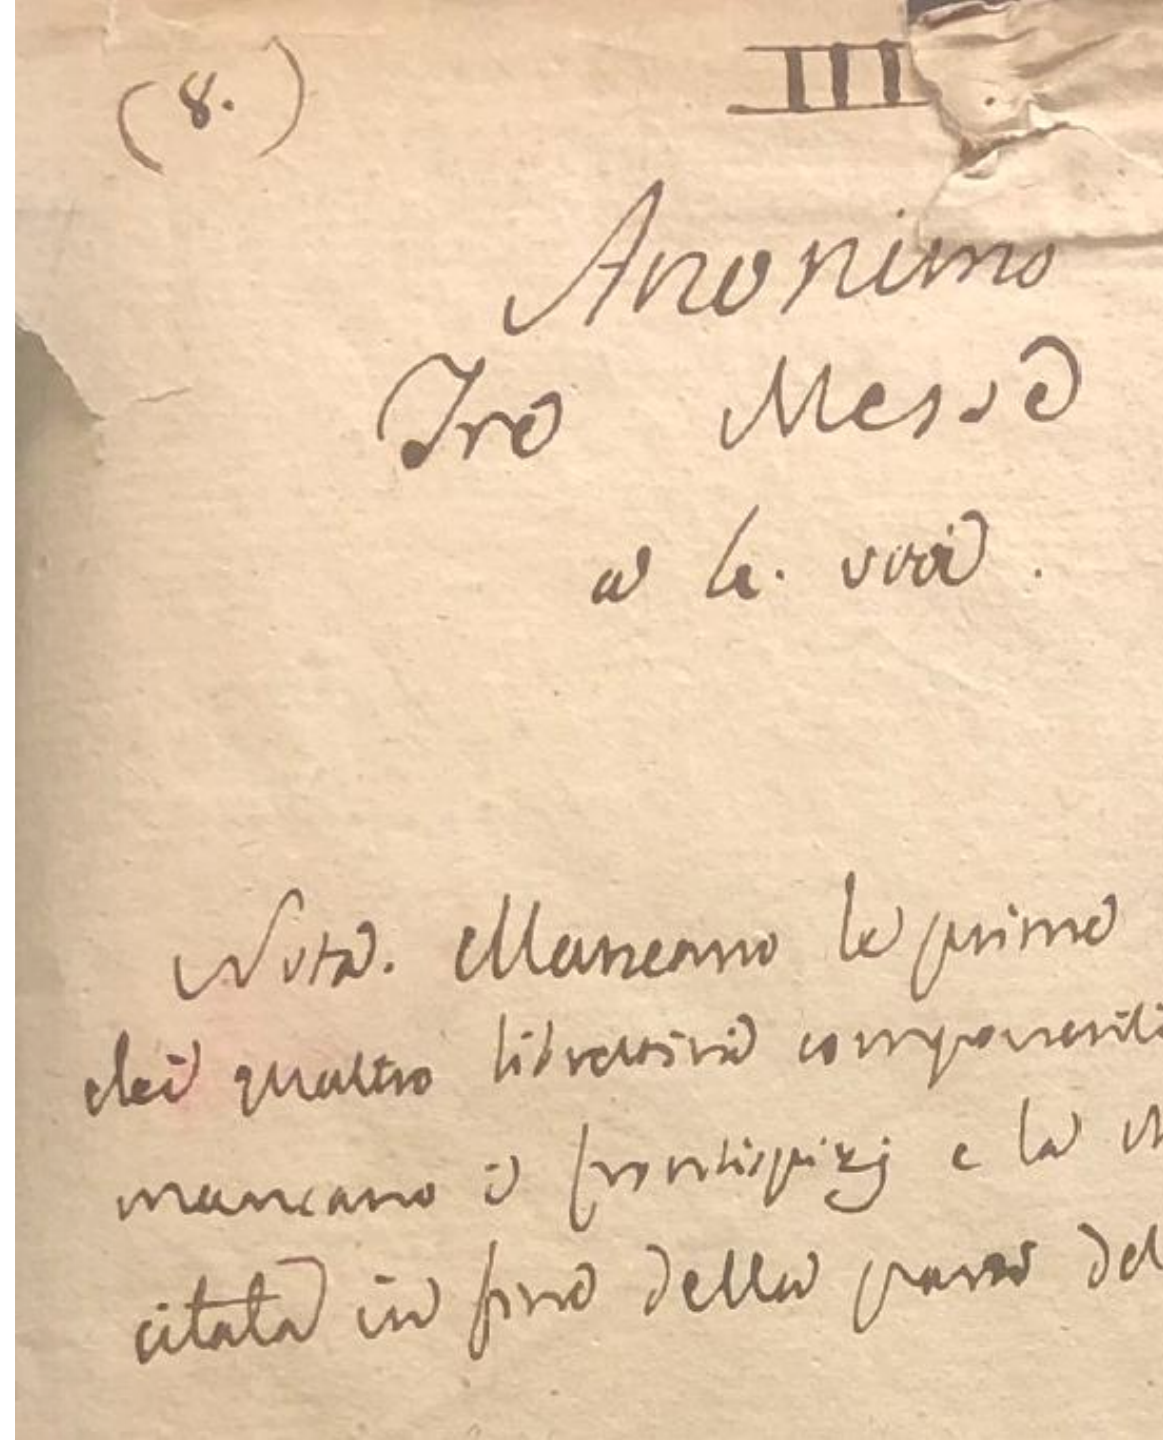 (8.)
III
Anonimo
Tre Messe
a 4. voci.
Nota. Mancano le prime
dei quattro libretti componenti
mancano i frontispizj e la
citata in fine della parte del